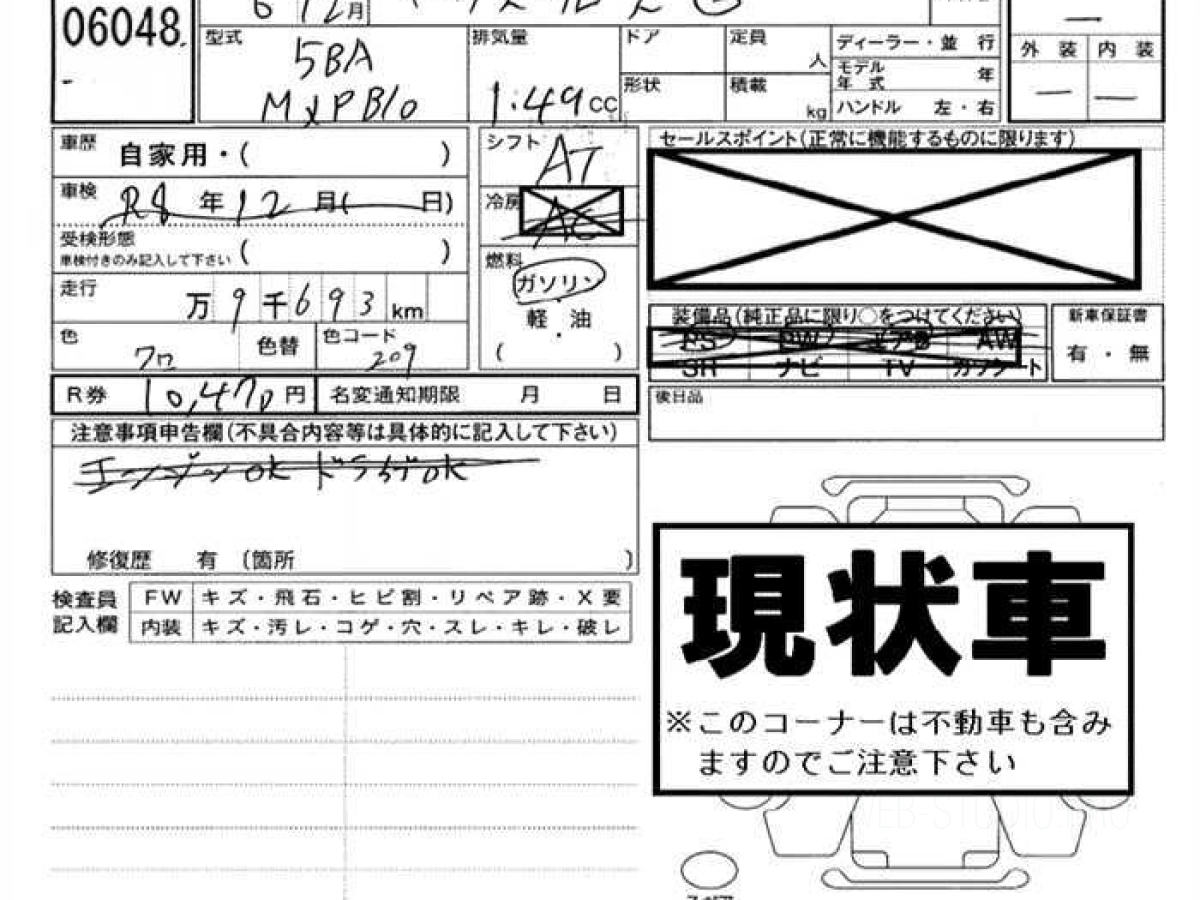 06048
6 12月
型式 5BA MXPB10
排気量 1.49 CC
ドア
定員 人
形状
積載 kg
ディーラー・並 行
モデル年式 年
ハンドル 左・右
外 装 内 装
車歴 自家用・( )
車検 R8 年 12 月( 日)
受検形態 ( )
車検付きのみ記入して下さい
走行 万 9 千 6 9 3 km
色 クロ 色替 色コード 209
シフト AT
冷房 AC
燃料 ガソリン
・
軽 油
( )
セールスポイント(正常に機能するものに限ります)
装備品(純正品に限り○をつけてください)
PS PW エアB AW
SR ナビ TV カワシート
新車保証書
有 ・ 無
後日品
R券 10,470 円 名変通知期限 月 日
注意事項申告欄(不具合内容等は具体的に記入して下さい)
エンジンOK ドライブOK
修復歴 有 〔箇所 〕
検査員記入欄
FW キズ・飛石・ヒビ割・リペア跡・X要
内装 キズ・汚レ・コゲ・穴・スレ・キレ・破レ
現状車
※このコーナーは不動車も含み
ますのでご注意下さい